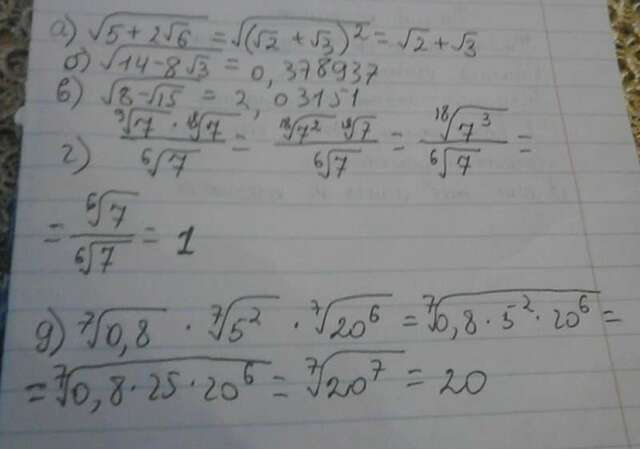 а) √5+2√6 = √(√2+√3)² = √2+√3
б) √14-8√3 = 0,378937
в) √8-√15 = 2,03151
г) ⁹√7 · ¹⁸√7 / ⁶√7 = ¹⁸√7² ¹⁸√7 / ⁶√7 = ¹⁸√7³ / ⁶√7 =
= ⁶√7 / ⁶√7 = 1
д) ⁷√0,8 · ⁷√5² · ⁷√20⁶ = ⁷√0,8·5²·20⁶ =
= ⁷√0,8·25·20⁶ = ⁷√20⁷ = 20